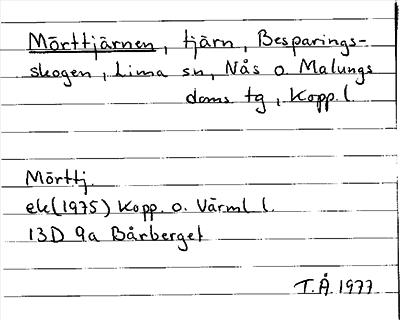 Mörttjärnen, tjärn, Besparings-
skogen, Lima sn, Nås o. Malungs
doms. tg, Kopp. l.
Mörttj.
ek (1975) Kopp. o. Värml l.
13D 9a Bårberget
T.Å. 1977